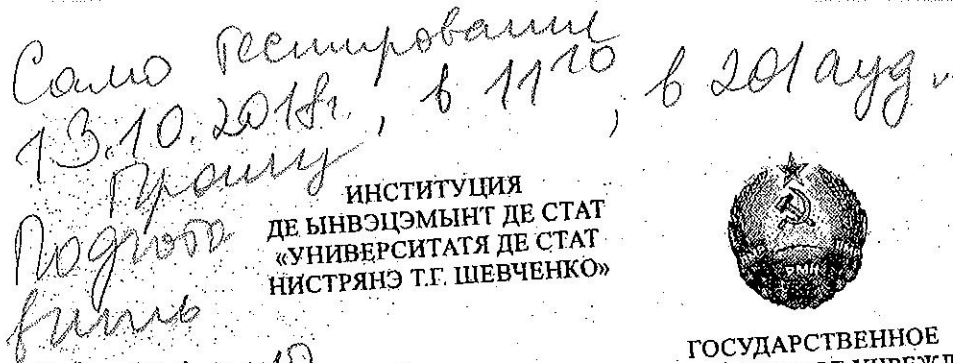 Само тестировании
13.10.2018г., в 11¹⁰, в 201 ауд.
Прошу
Подгото
вить
ИНСТИТУЦИЯ
ДЕ ЫНВЭЦЭМЫНТ ДЕ СТАТ
«УНИВЕРСИТАТЯ ДЕ СТАТ
НИСТРЯНЭ Т.Г. ШЕВЧЕНКО»
ПМР
ГОСУДАРСТВЕННОЕ